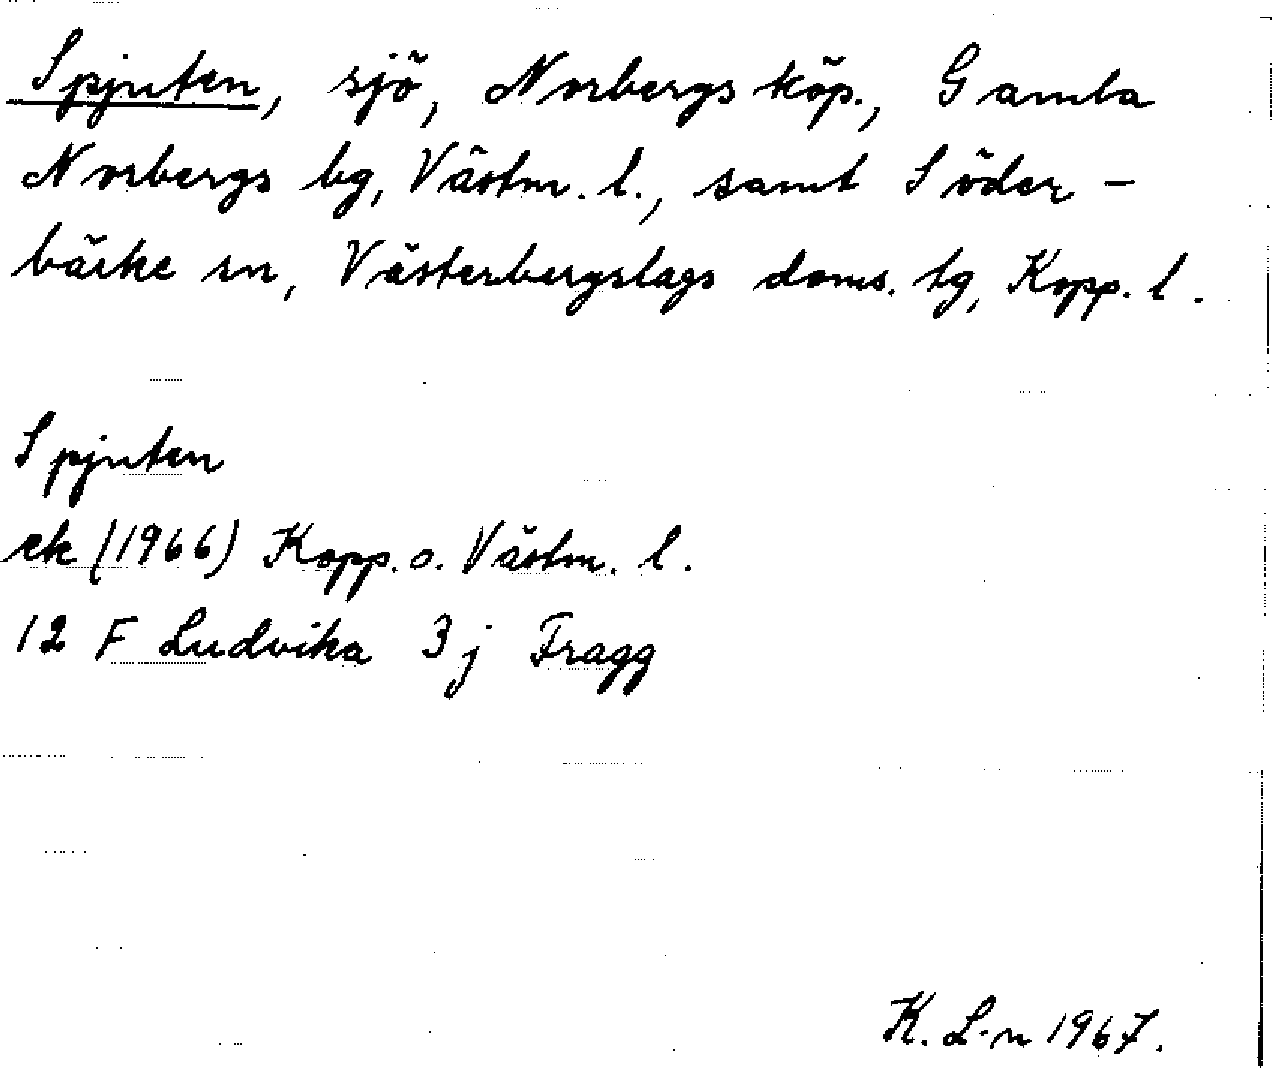 Spjuten, sjö, Norbergs köp., Gamla
Norbergs bg, Västm. l., samt Söder-
bärke sn, Västerbergslags doms. tg, Kopp. l.
Spjuten
ek (1966) Kopp. o. Västm. l.
12 F Ludvika 3 j Fragg
K. L-n 1967.